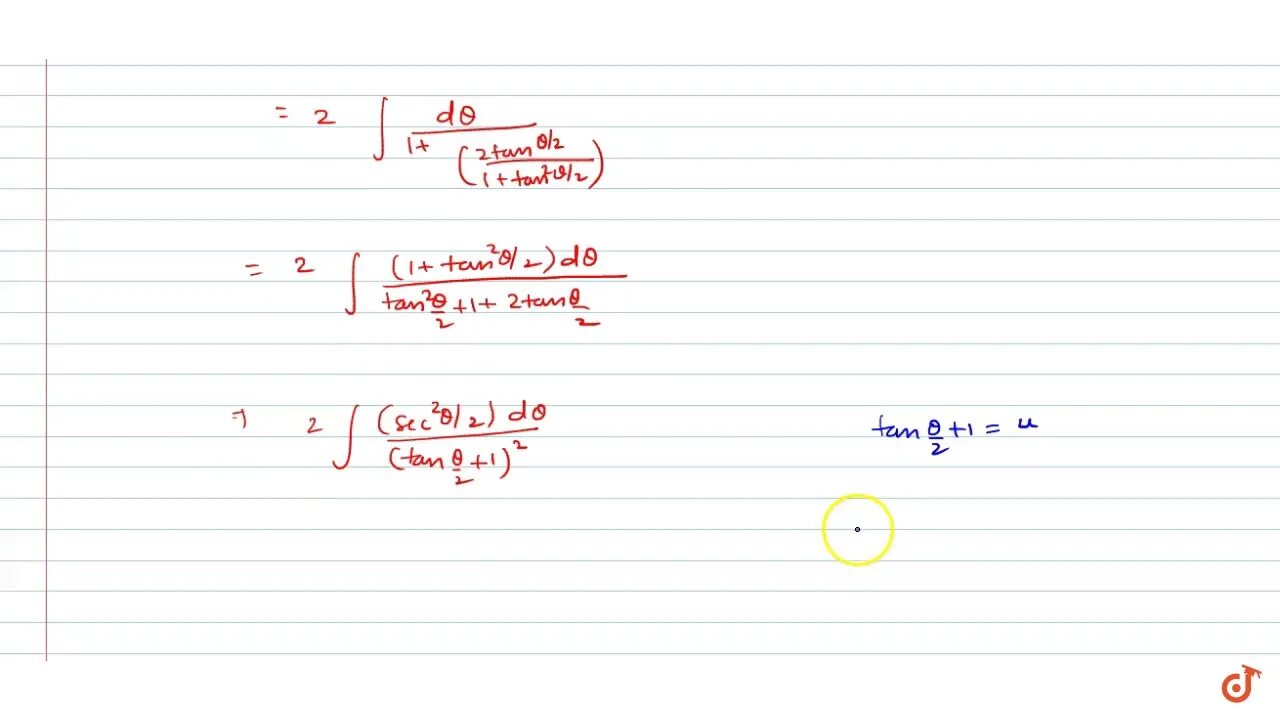 = 2 ∫ dθ / (1 + (2tan θ/2 / (1 + tan²θ/2)))
= 2 ∫ (1 + tan²θ/2) dθ / (tan²θ/2 + 1 + 2tan θ/2)
⇒ 2 ∫ (sec²θ/2) dθ / (tan θ/2 + 1)²
tan θ/2 + 1 = u